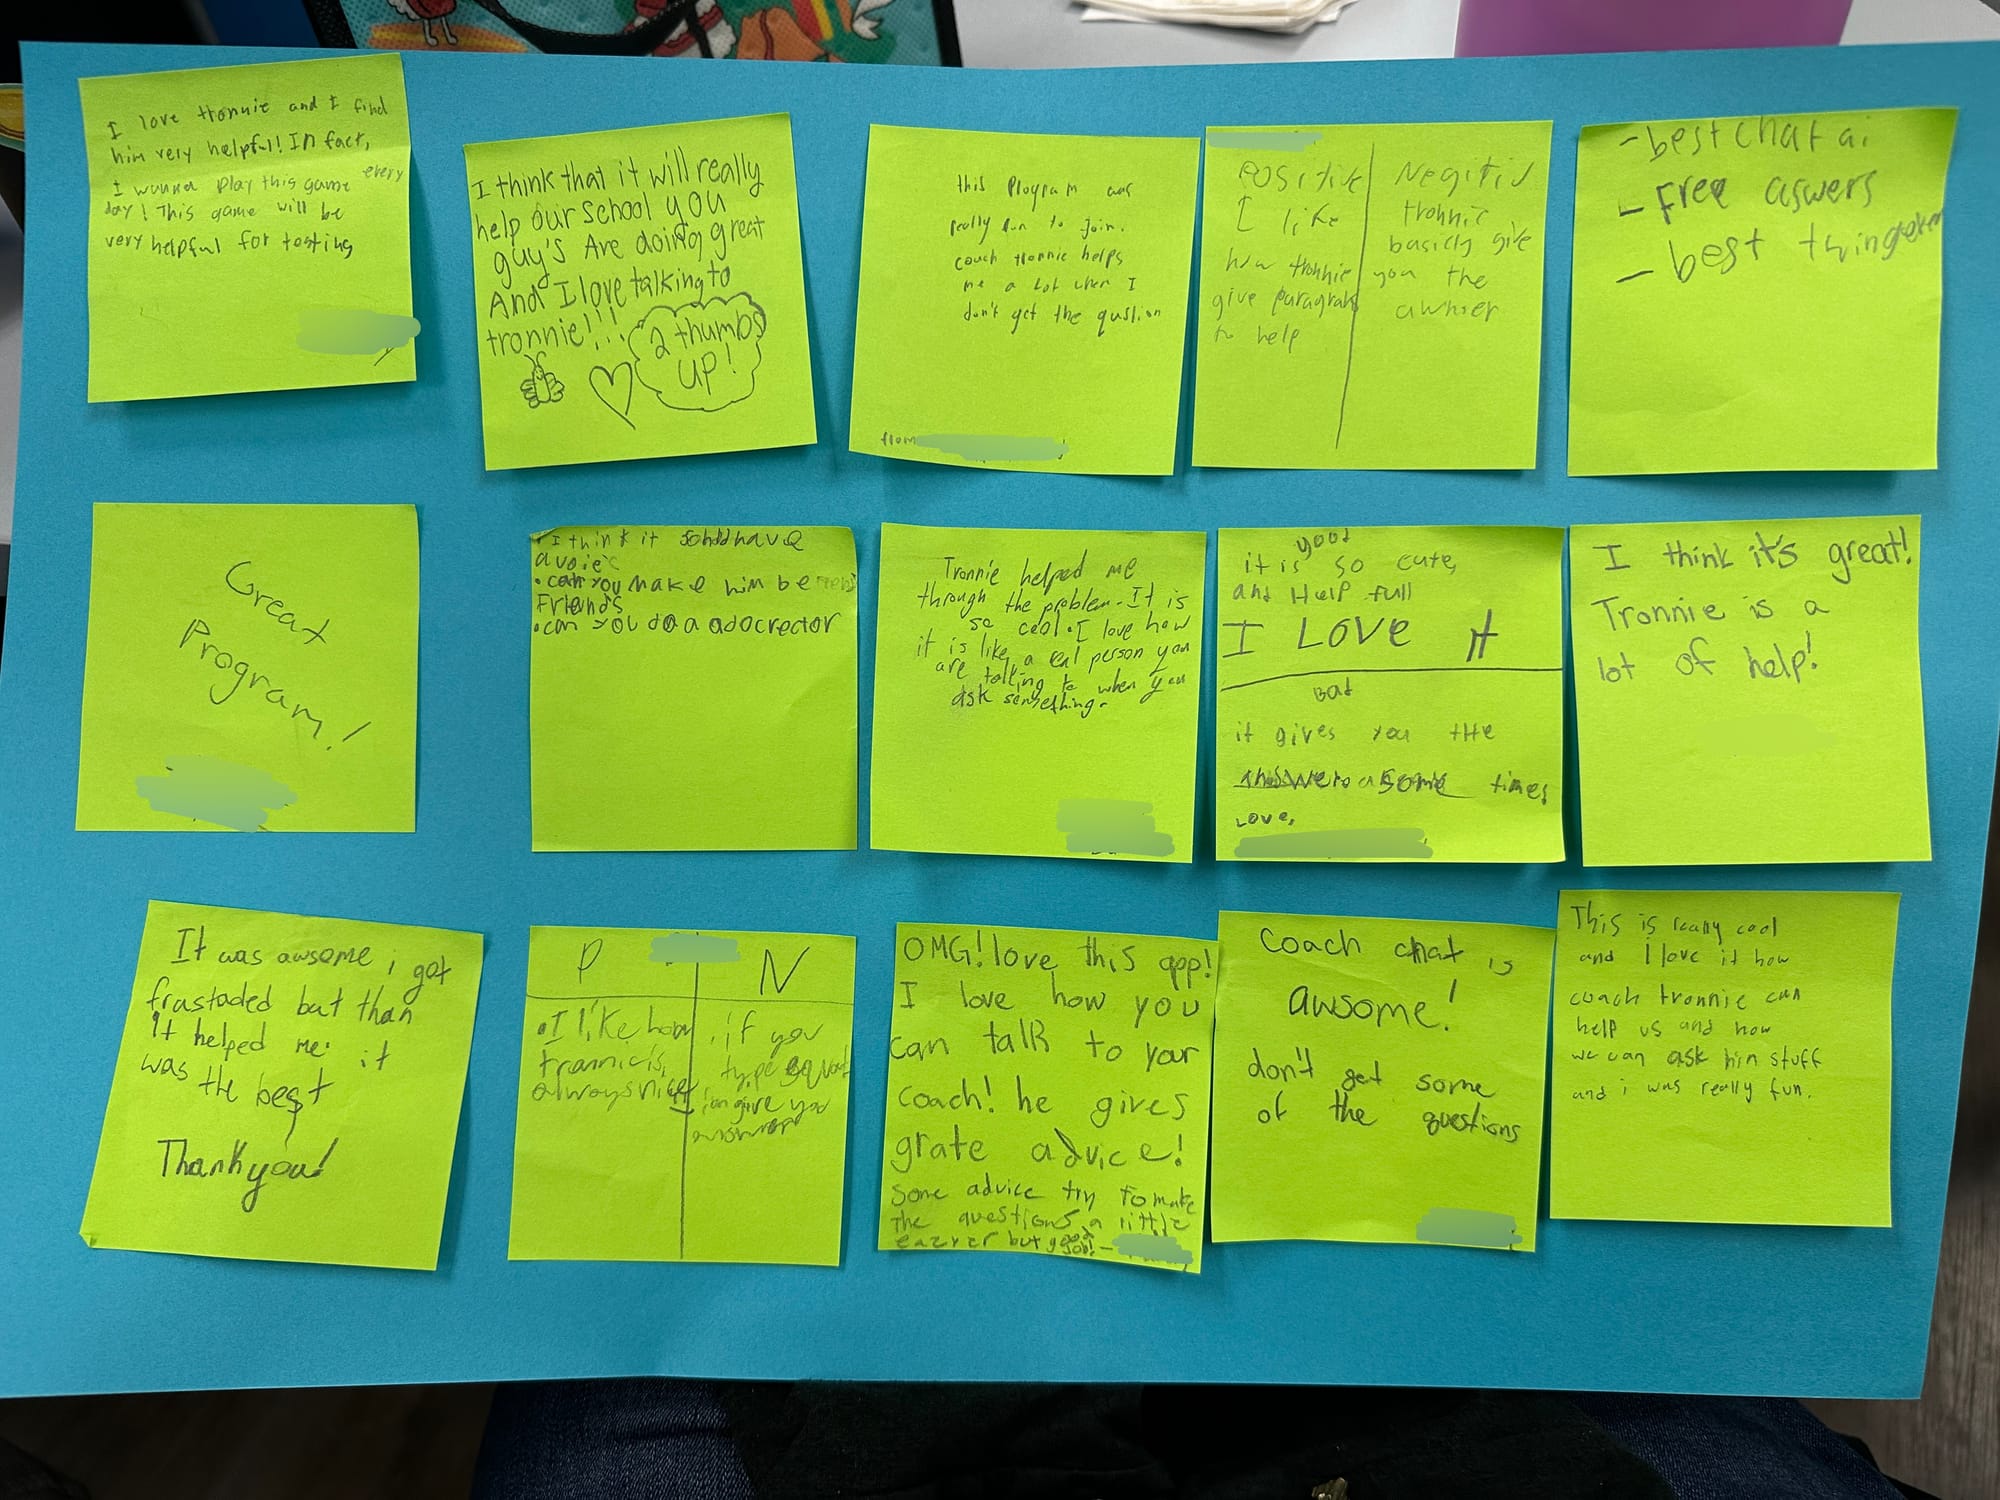 I love tronnie and I find
him very helpful! In fact,
I wanna play this game every
day! This game will be
very helpful for testing
I think that it will really
help our school you
guy's Are doing great
And I love talking to
tronnie!!!
2 thumbs
up!
this program was
really fun to join.
couch tronnie helps
me a lot when I
don't get the qustion
from
Positive
I like
how tronnie
give paragrah
to help
Negitiv
tronnie
basicly give
you the
awnser
- best chat ai
- Free aswers
- best
Great
Program!
• I think it
have
a
• can you make him be
Friends
• can you do a adocrector
Tronnie helped me
through the problem. It is
so cool. I love how
it is like a real person you
are talking to when you
ask something.
good
it is so cute,
and Help full
I LOVE it
Bad
it gives you the
some times
Love,
I think it's great!
Tronnie is a
lot of help!
It was awsome i got
frustaded but than
it helped me. it
was the best
Thankyou!
P
• I like how
tronnie is
always nice
N
• if you
type
can give you
OMG! love this app!
I love how you
can talk to your
coach! he gives
grate advice!
Some advice try to make
the questions a little
eazyer but good
job! -
Coach chat is
awsome!
don't get some
of the questions
This is really cool
and I love it how
coach tronnie can
help us and how
we can ask him stuff
and i was really fun.